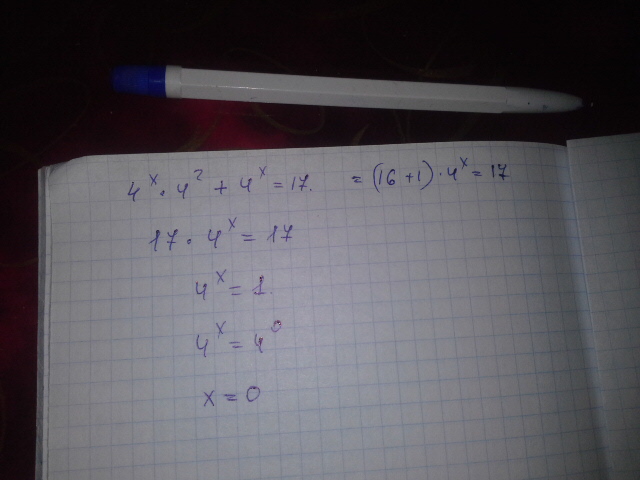 4^x · 4^2 + 4^x = 17. = (16 + 1) · 4^x = 17
17 · 4^x = 17
4^x = 1.
4^x = 4^0
x = 0